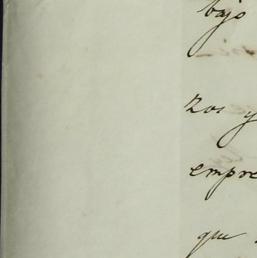 bajo
zos y
empre
que